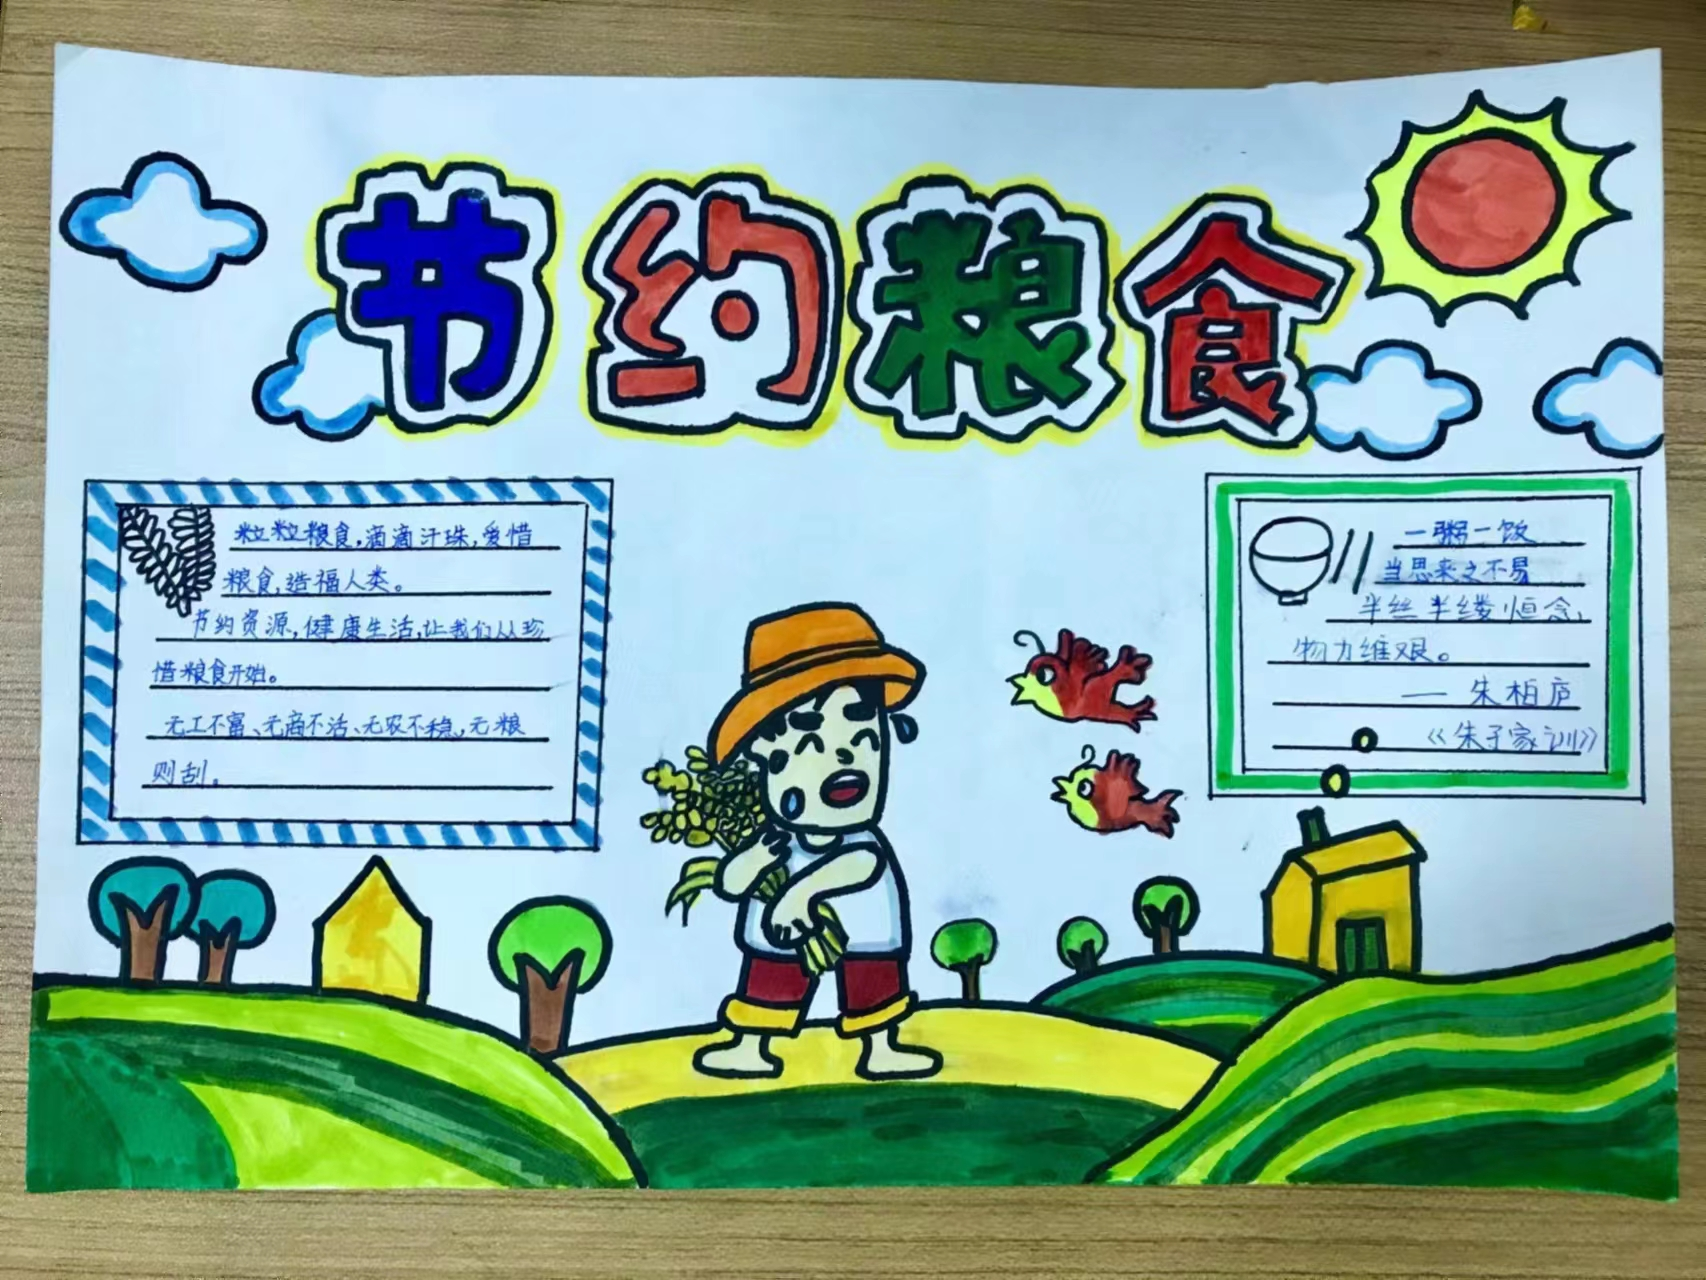 节约粮食
粒粒粮食,滴滴汗珠,爱惜
粮食,造福人类。
节约资源,健康生活,让我们从珍
惜粮食开始。
无工不富、无商不活、无农不稳,无粮
则刮。
一粥一饭
当思来之不易
半丝半缕恒念,
物力维艰。
— 朱柏庐
《朱子家训》